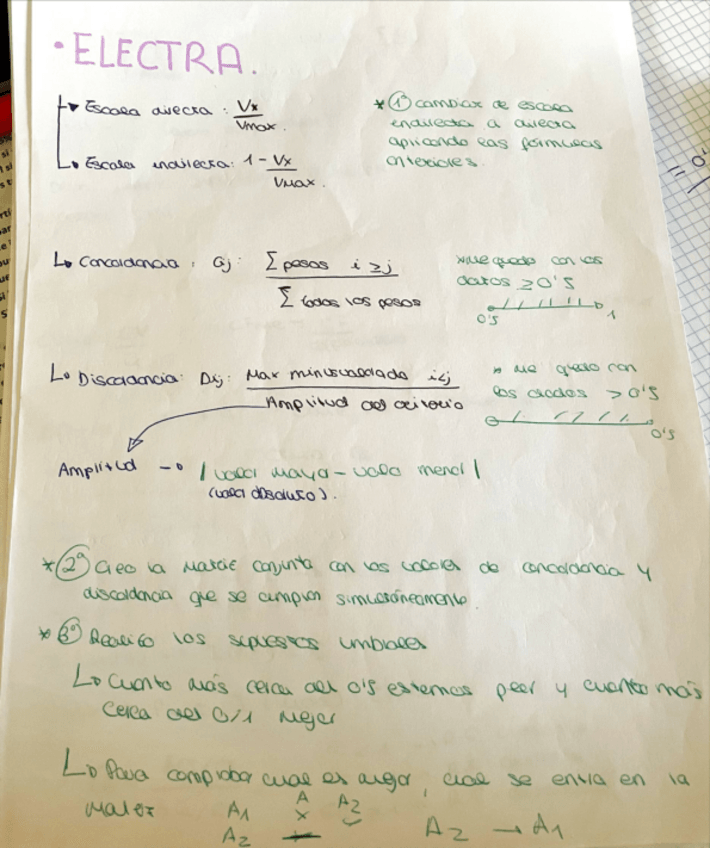 • ELECTRA.
Escala directa: Vx / Vmax.
Escala indirecta: 1 - Vx / Vmax.
* 1º cambiar de escala
indirecta a directa
aplicando las fórmulas
anteriores.
Concordancia: Cij: Σ pesos i ≥ j / Σ todos los pesos
*Me quedo con los
datos ≥ 0'5
0'5 1
Discordancia: Dij: Max minusvalorado i<j / Amplitud del criterio
* Me quedo con
los datos > 0'5
0'5
Amplitud → | valor mayor - valor menor |
(valor absoluto).
* 2º Creo la matriz conjunta con los valores de concordancia y
discordancia que se cumplen simultáneamente.
* 3º Realizo los supuestos umbrales
Cuanto más cerca del 0'5 estemos peor y cuanto más
cerca del 0/1 mejor
Para comprobar cual es mejor, cual se en la
matriz A1 A A2
A2 A2 → A1